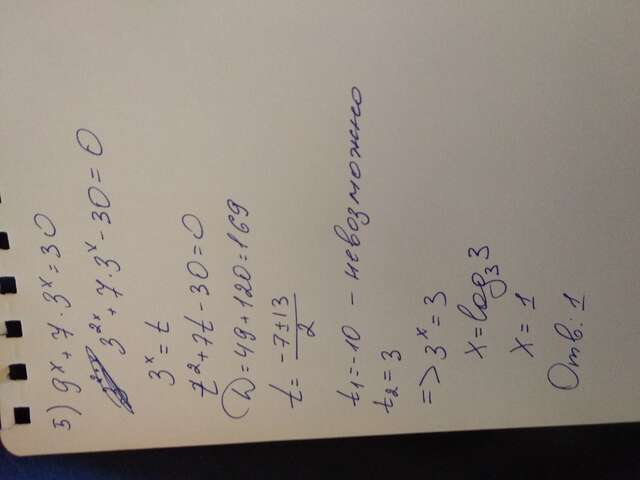 5) 9ˣ + 7 · 3ˣ = 30
3²ˣ + 7 · 3ˣ - 30 = 0
3ˣ = t
t² + 7t - 30 = 0
D = 49 + 120 = 169
t = (-7 ± 13)/2
t₁ = -10 - невозможно
t₂ = 3
=> 3ˣ = 3
x = log₃3
x = 1
Отв: 1